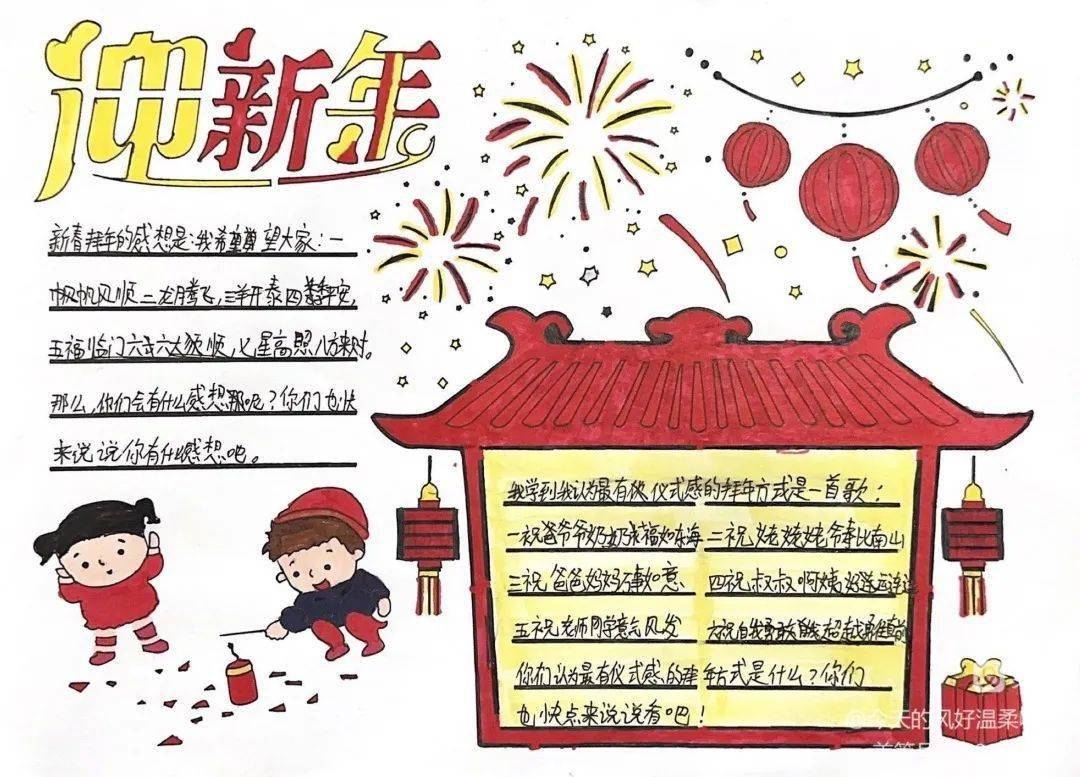 迎新年
新春拜年的感想是:我希望大家:一
帆帆风顺二龙腾飞,三羊开泰四季平安,
五福临门六六大顺,七星高照八方来财。
那么,你们会有什么感想那呢?你们也快
来说说你有什么感想吧。
我学到我认为最有仪式感的拜年方式是一首歌:
一祝爷爷奶奶福如东海 二祝姥姥姥爷寿比南山
三祝爸爸妈妈万事如意 四祝叔叔啊姨好运连连
五祝老师同学意气风发 六祝自我勇敢超越
你们认为最有仪式感的拜年方式是什么?你们
也快点来说说看吧!
@今天的风好温柔